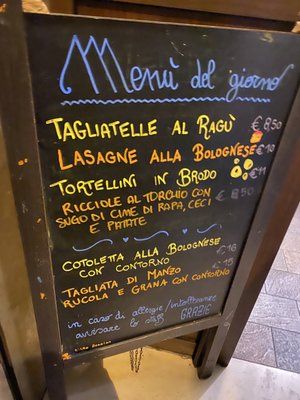 Menù del giorno
TAGLIATELLE AL RAGÙ € 8,50
LASAGNE ALLA BOLOGNESE € 10
TORTELLINI IN BRODO € 11
RICCIOLE AL TORCHIO CON € 8,50
SUGO DI CIME DI RAPA, CECI
E PATATE
COTOLETTA ALLA BOLOGNESE € 16
CON CONTORNO
TAGLIATA DI MANZO € 15
RUCOLA E GRANA CON CONTORNO
in caso di allergie/intolleranze
avvisare lo staff GRAZIE